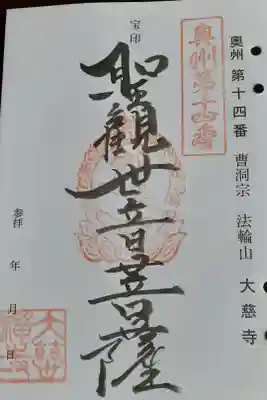 奥州 第十四番 曹洞宗 法輪山 大慈寺
奥州第十四番
宝印
聖観世音菩薩
参拝 年 月 日